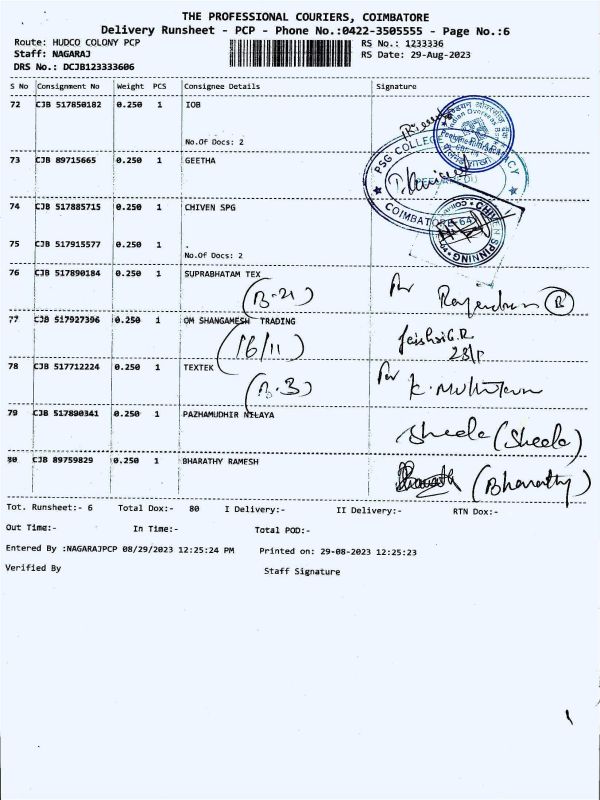 THE PROFESSIONAL COURIERS, COIMBATORE
Delivery Runsheet - PCP - Phone No.:0422-3505555 - Page No.:6
Route: HUDCO COLONY PCP RS No.: 1233336
Staff: NAGARAJ RS Date: 29-Aug-2023
DRS No.: DCJB123333606
S No Consignment No Weight PCS Consignee Details Signature
72 CJB 517850182 0.250 1 IOB
No.Of Docs: 2
Indian Overseas Bank
73 CJB 89715665 0.250 1 GEETHA
PSG COLLEGE PHARMACY
COIMBATORE-641
74 CJB 517885715 0.250 1 CHIVEN SPG
CHIVEN SPINNING
75 CJB 517915577 0.250 1 .
No.Of Docs: 2
76 CJB 517890184 0.250 1 SUPRABHATAM TEX
(B-21) For Rajendran (B)
77 CJB 517927396 0.250 1 OM SHANGAMESH TRADING
(16/11)
78 CJB 517712224 0.250 1 TEXTEK For
(B.3)
79 CJB 517890341 0.250 1 PAZHAMUDHIR NILAYA
Sheela (Sheela)
80 CJB 89759829 0.250 1 BHARATHY RAMESH
(Bharathy)
Tot. Runsheet:- 6 Total Dox:- 80 I Delivery:- II Delivery:- RTN Dox:-
Out Time:- In Time:- Total POD:-
Entered By :NAGARAJPCP 08/29/2023 12:25:24 PM Printed on: 29-08-2023 12:25:23
Verified By Staff Signature